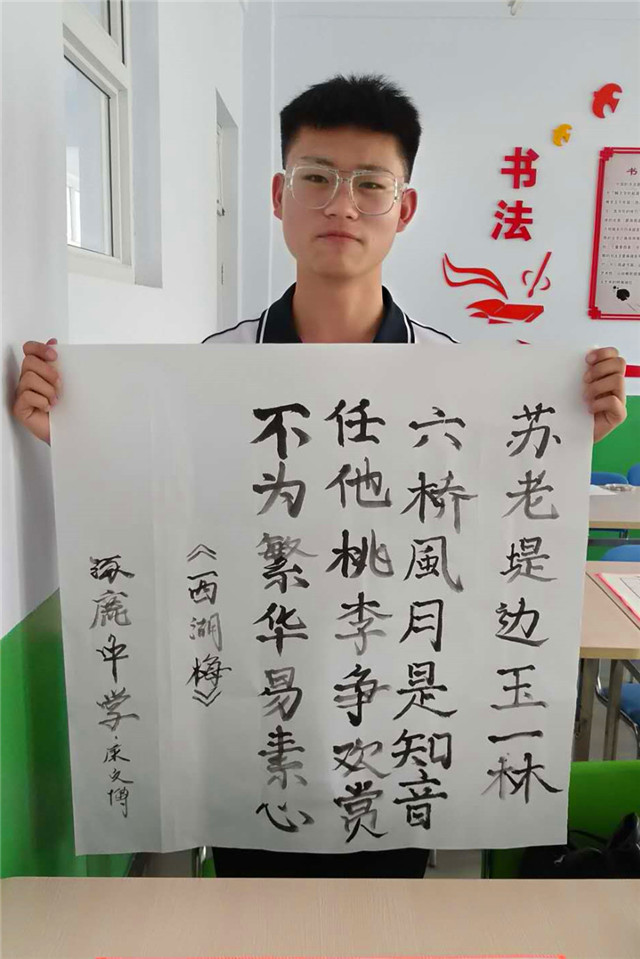 书法
苏老堤边玉一林
六桥風月是知音
任他桃李争欢赏
不为繁华易素心
《西湖梅》
涿鹿中学·康文博
书